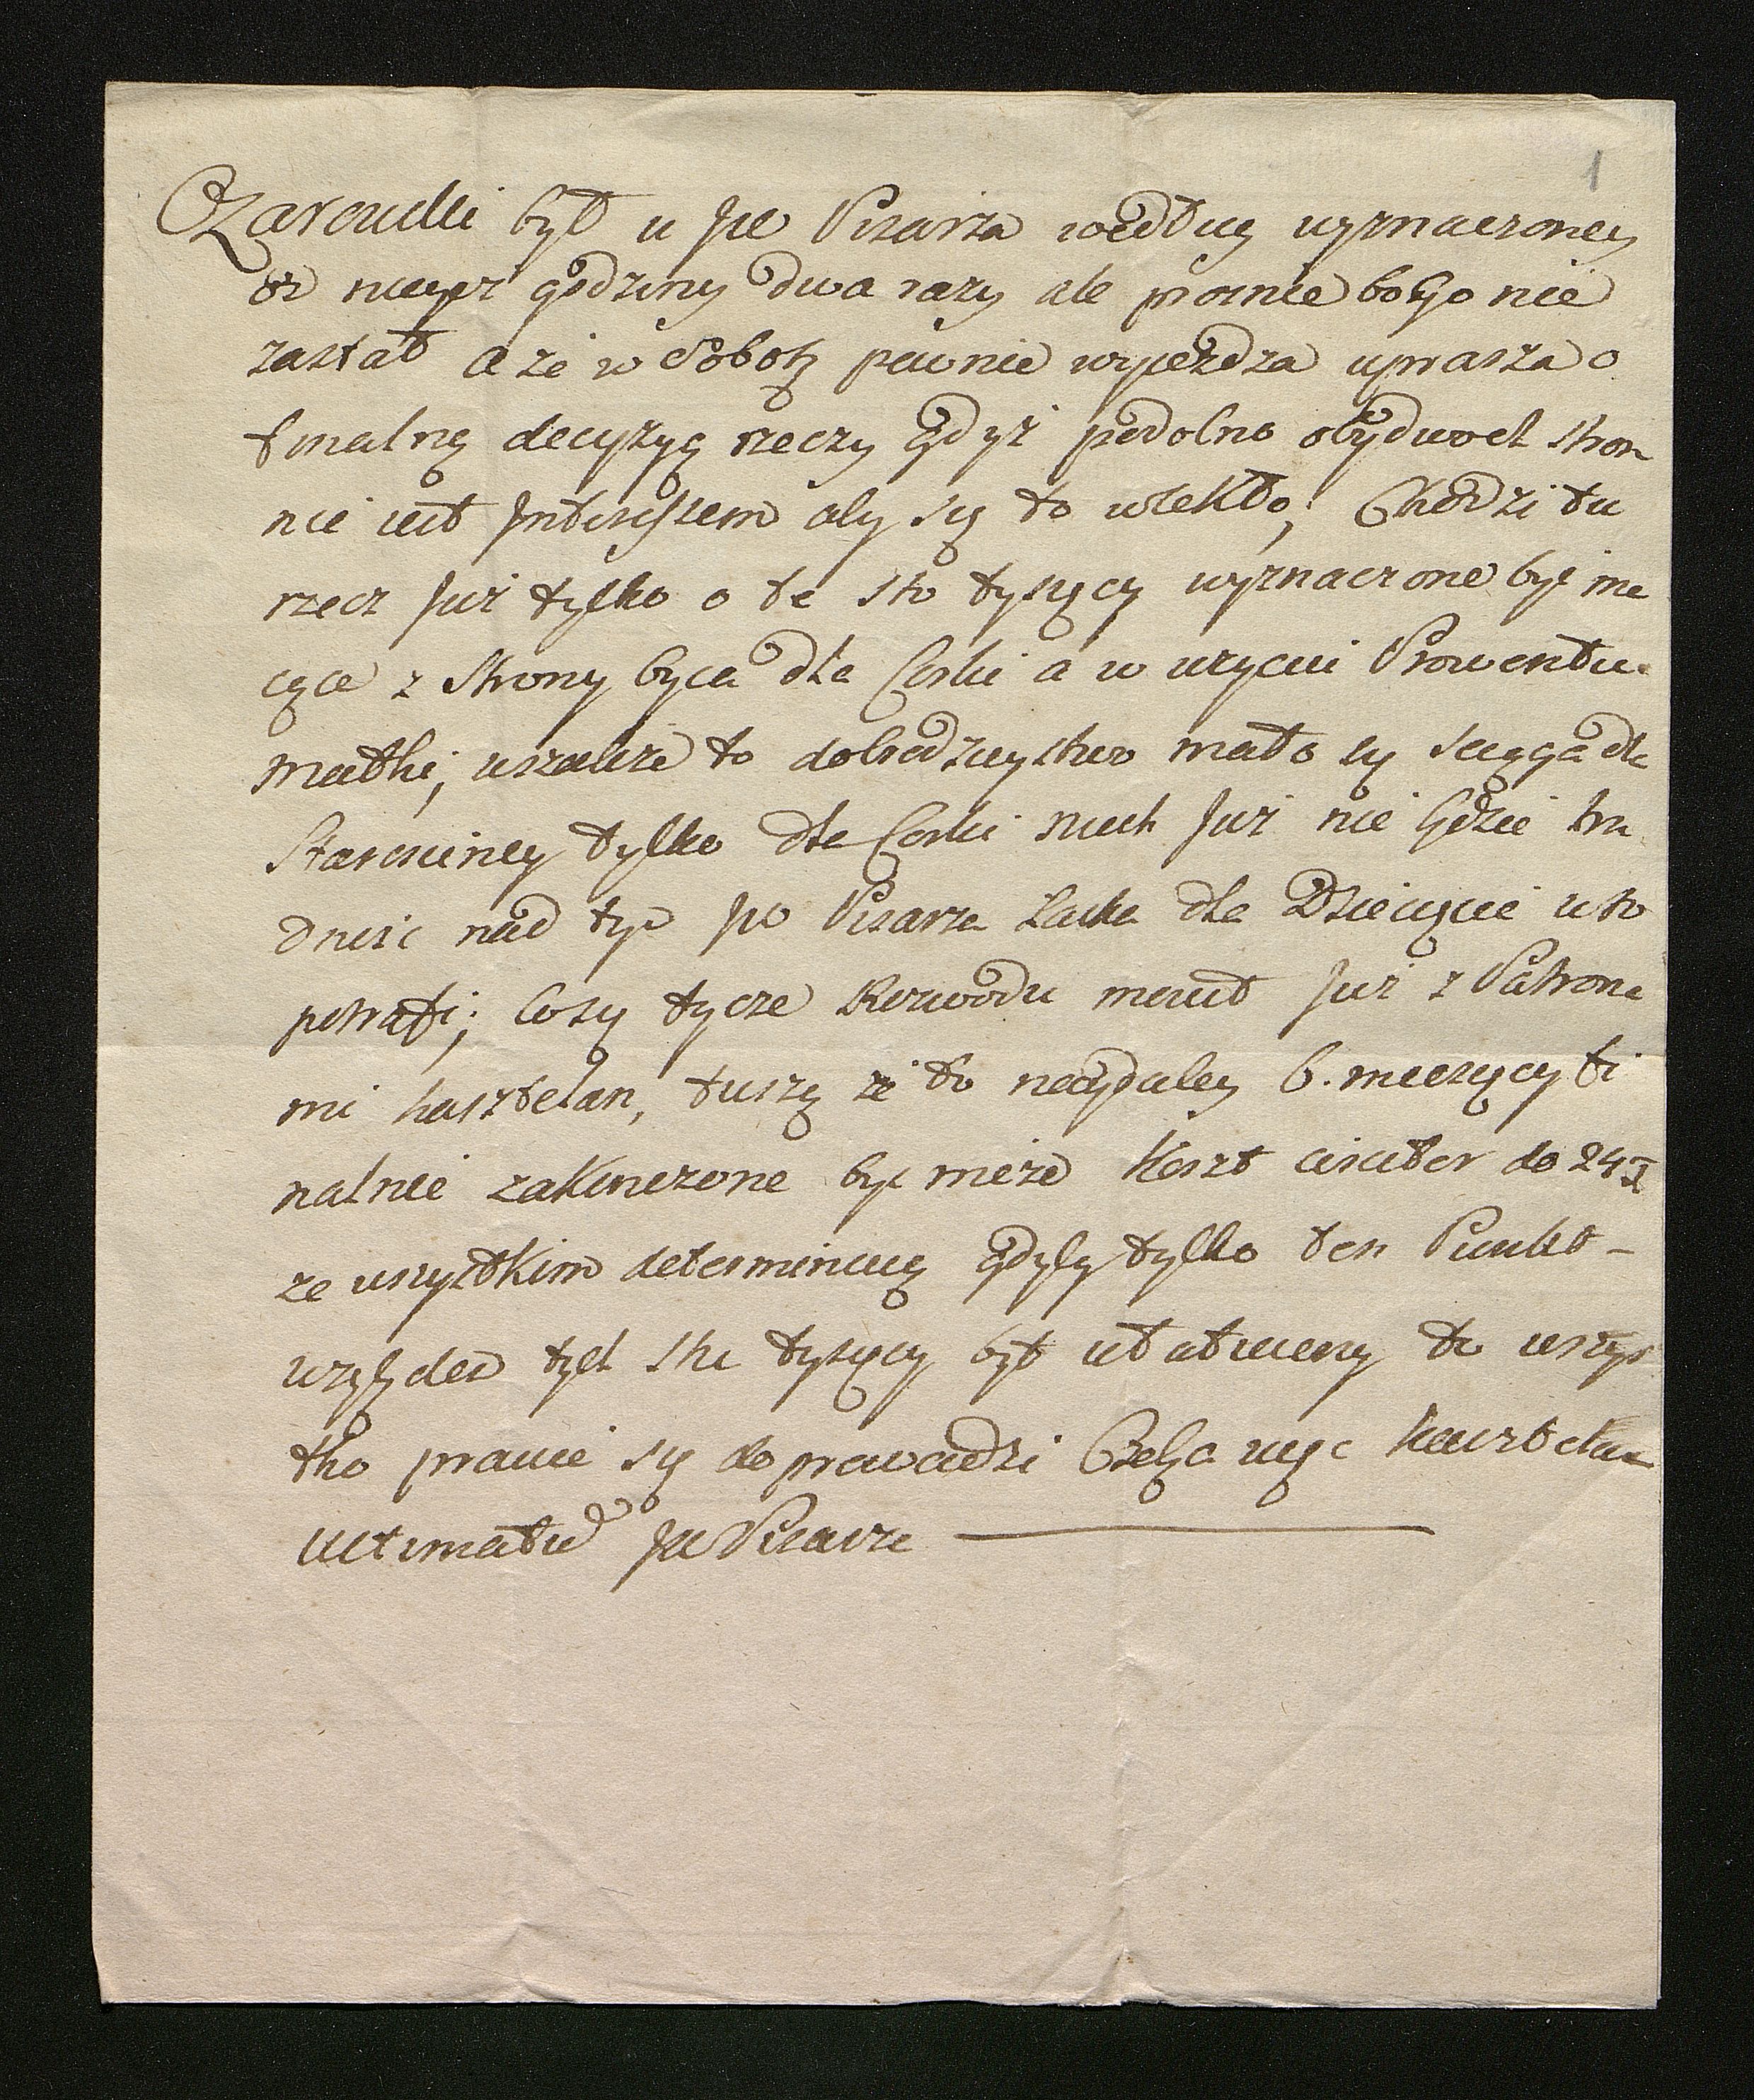 1
Czarnecki był u JW Pisarza według wyznaczoney
godziny dwa razy ale prożnie bo go nie
zastał a że w Sobotę pewnie wyjeżdza uprasza o
finalną decyzyą rzeczy gdyż podobno obydwoch stron
nie iest Interessem aby się to wlekło; Chodzi tu
rzecz Już tylko o te sto tysięcy wyznaczone być ma
iące z Strony oyca dla Corki a w użyciu Prowentu
Matki; wszakże to dobrodzieystwo mało się sciąga dla
Starosciney tylko dla Corki niech Już nie będzie tru
dnosc nad tym JW Pisarza Łaska dla Dziecięcia u to
potrafi; Co się tycze Rozwodu mowił Już z Patrona
mi Kasztelan, tuszę że to naydaley 6. miesięcy fi
nalnie zakonczone być może Koszt circiter do 24
ze wszystkim determinuię gdyby tylko ten Punkt –
względem tych stu tysięcy był ułatwiony to wszys
tko prawie się do prowadzi Czeka więc Kasztelan
Ultimatum JW Pisarza